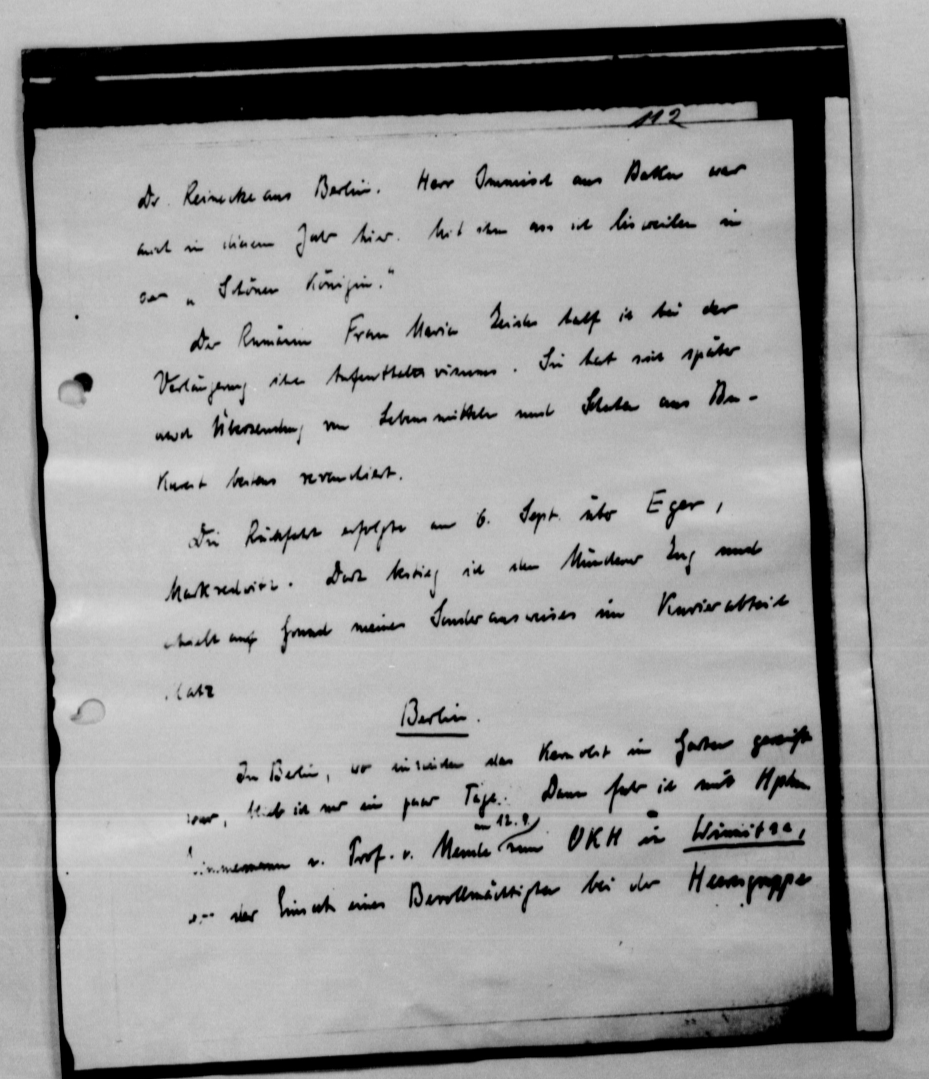 112
Dr. Reinecke aus Berlin. Herr Immisch aus war
auch in diesem Jahr hier. Mit ihm ass ich bisweilen in
der „Schönen Königin.“
Der Rumänin Frau Maria half ich bei der
Verlängerung ihres Aufenthaltsvisums. Sie hat sich später
durch Übersendung von Lebensmitteln und aus Bu-
karest bestens revanchiert.
Die Rückfahrt erfolgte am 6. Sept. über Eger,
Marktredwitz. Dort bestieg ich den Münchener Zug und
erhielt auf Grund meines Sonderausweises im Kurierabteil
Platz
Berlin.
In Berlin, wo inzwischen das Kernobst im Garten gereift
war, blieb ich nur ein paar Tage. Dann fuhr ich mit Hptm.
Zimmermann u. Prof. v. Mende am 12.9. zum OKH in Winniza,
wo der Einsatz eines Bevollmächtigten bei der Heeresgruppe